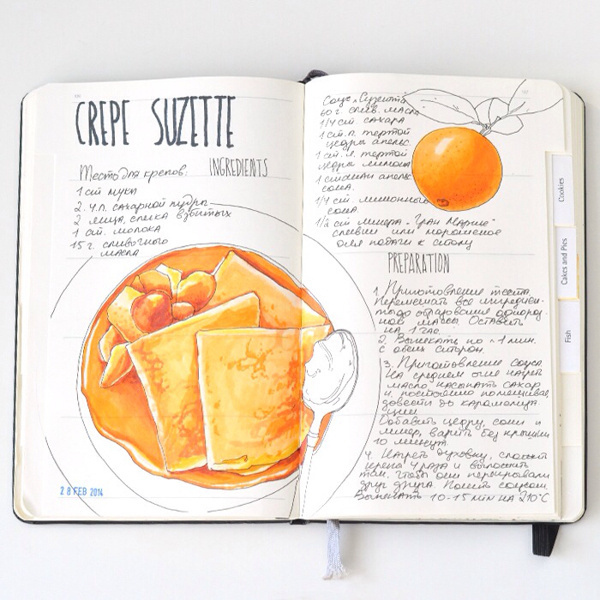 CREPE SUZETTE
INGREDIENTS
Тесто для крепов:
1 ст муки
2 ч.л. сахарной пудры
2 яйца, слегка взбитых
1 ст. молока
15 г. сливочного
масла
28 FEB 2014
Соус "Сузетт"
60 г слив. масла
1/4 ст сахара
1 ст. л. тертой
цедры апельс.
1 ст. л. тертой
цедры лимона
1 стакан апельс
сока
1/4 ст лимонного
сока
1/2 ст ликера "Гран Марнье"
сливки или мороженое
для подачи к столу
PREPARATION
1. Приготовление теста
Перемешать все ингредиен-
ты до образования однород-
ной массы. Оставить
на 1 час.
2. Выпекать по ~1 мин.
с обеих сторон.
3. Приготовление соуса
На среднем огне нагреть
масло всыпать сахар
и, постоянно помешивая,
довести до карамелиза
ции
Добавить цедру, соки и
ликер, варить без крышки
10 минут
4. Нагреть духовку, сложить
крепы 4 раза и выложить
так, чтобы они перекрывали
друг друга. Полить соусом.
Выпекать 10-15 мин на 210°C
Cookies
Cakes and Pies
Fish